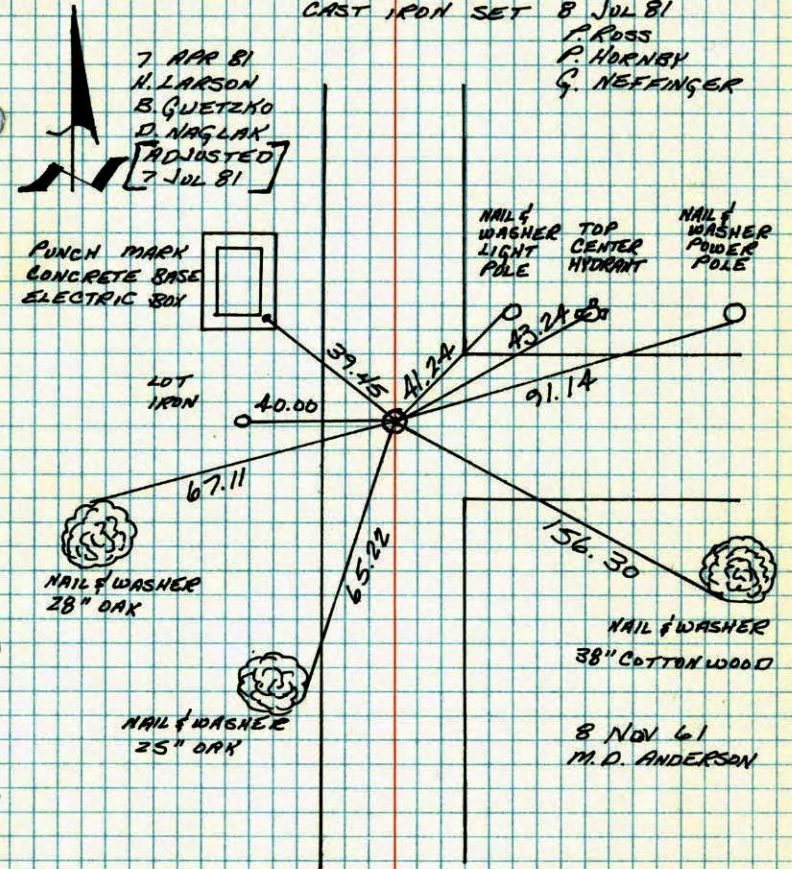 CAST IRON SET 8 JUL 81
P. ROSS
P. HORNBY
G. NEFFINGER
7 APR 81
H. LARSON
B. GUETZKO
D. NAGLAK
[ADJUSTED
7 JUL 81]
PUNCH MARK
CONCRETE BASE
ELECTRIC BOX
NAIL &
WASHER
LIGHT
POLE
TOP
CENTER
HYDRANT
NAIL &
WASHER
POWER
POLE
39.45
41.24
43.24
91.14
LOT
IRON
40.00
67.11
65.22
156.30
NAIL & WASHER
28" OAK
NAIL & WASHER
38" COTTONWOOD
NAIL & WASHER
25" OAK
8 NOV 61
M.D. ANDERSON